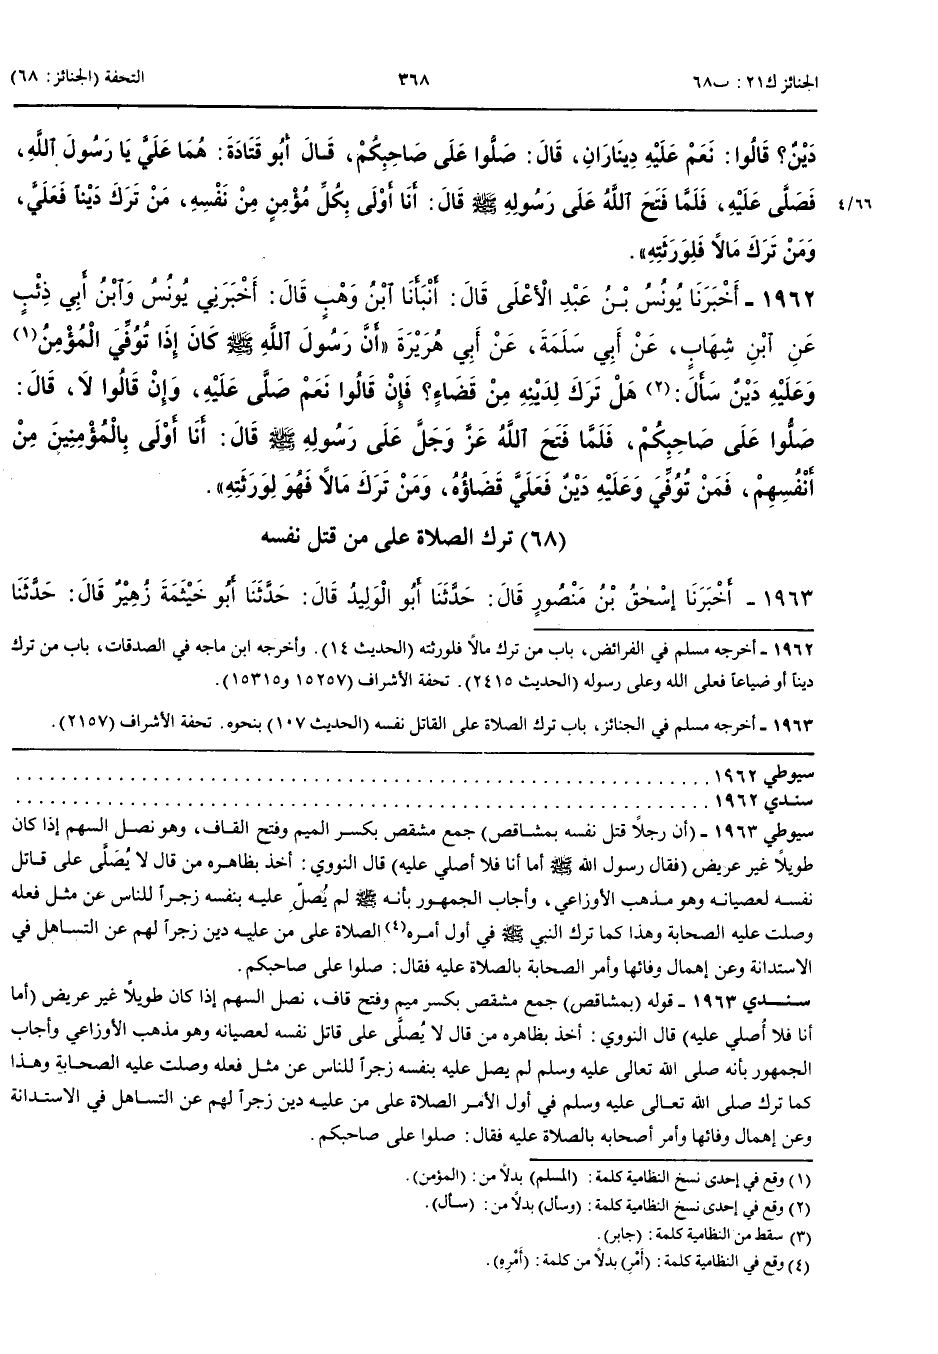 الجنائز ك٢١: ب٦٨ ٣٦٨ التحفة (الجنائز: ٦٨)
دَيْنٌ؟ قَالُوا: نَعَمْ عَلَيْهِ دِينَارَانِ، قَالَ: صَلُّوا عَلَى صَاحِبِكُمْ، قَالَ أَبُو قَتَادَةَ: هُمَا عَلَيَّ يَا رَسُولَ ٱللَّهِ،
٤/٦٦ فَصَلَّى عَلَيْهِ، فَلَمَّا فَتَحَ ٱللَّهُ عَلَى رَسُولِهِ ﷺ قَالَ: أَنَا أَوْلَى بِكُلِّ مُؤْمِنٍ مِنْ نَفْسِهِ، مَنْ تَرَكَ دَيْناً فَعَلَيَّ،
وَمَنْ تَرَكَ مَالاً فَلِوَرَثَتِهِ».
١٩٦٢ - أَخْبَرَنَا يُونُسُ بْنُ عَبْدِ الأَعْلَى قَالَ: أَنْبَأَنَا ٱبْنُ وَهْبٍ قَالَ: أَخْبَرَنِي يُونُسُ وَٱبْنُ أَبِي ذِئْبٍ
عَنِ ٱبْنِ شِهَابٍ، عَنْ أَبِي سَلَمَةَ، عَنْ أَبِي هُرَيْرَةَ «أَنَّ رَسُولَ ٱللَّهِ ﷺ كَانَ إِذَا تُوُفِّيَ الْمُؤْمِنُ(١)
وَعَلَيْهِ دَيْنٌ سَأَلَ:(٢) هَلْ تَرَكَ لِدَيْنِهِ مِنْ قَضَاءٍ؟ فَإِنْ قَالُوا نَعَمْ صَلَّى عَلَيْهِ، وَإِنْ قَالُوا لَا، قَالَ:
صَلُّوا عَلَى صَاحِبِكُمْ، فَلَمَّا فَتَحَ ٱللَّهُ عَزَّ وَجَلَّ عَلَى رَسُولِهِ ﷺ قَالَ: أَنَا أَوْلَى بِالْمُؤْمِنِينَ مِنْ
أَنْفُسِهِمْ، فَمَنْ تُوُفِّيَ وَعَلَيْهِ دَيْنٌ فَعَلَيَّ قَضَاؤُهُ، وَمَنْ تَرَكَ مَالاً فَهُوَ لِوَرَثَتِهِ».
(٦٨) ترك الصلاة على من قتل نفسه
١٩٦٣ - أَخْبَرَنَا إِسْحٰقُ بْنُ مَنْصُورٍ قَالَ: حَدَّثَنَا أَبُو الْوَلِيدُ قَالَ: حَدَّثَنَا أَبُو خَيْثَمَةَ زُهَيْرٌ قَالَ: حَدَّثَنَا
١٩٦٢ - أخرجه مسلم في الفرائض، باب من ترك مالاً فلورثته (الحديث ١٤). وأخرجه ابن ماجه في الصدقات، باب من ترك
ديناً أو ضياعاً فعلى الله وعلى رسوله (الحديث ٢٤١٥). تحفة الأشراف (١٥٢٥٧ و١٥٣١٥).
١٩٦٣ - أخرجه مسلم في الجنائز، باب ترك الصلاة على القاتل نفسه (الحديث ١٠٧) بنحوه. تحفة الأشراف (٢١٥٧).
سيوطي ١٩٦٢ . . . . . . . . . . . . . . . . . . . . . . . . . . . . . . . . . . . . . . . .
سندي ١٩٦٢ . . . . . . . . . . . . . . . . . . . . . . . . . . . . . . . . . . . . . . . .
سيوطي ١٩٦٣ - (أن رجلاً قتل نفسه بمشاقص) جمع مشقص بكسر الميم وفتح القاف، وهو نصل السهم إذا كان
طويلاً غير عريض (فقال رسول الله ﷺ أما أنا فلا أصلي عليه) قال النووي: أخذ بظاهره من قال لا يُصَلَّى على قاتل
نفسه لعصيانه وهو مذهب الأوزاعي، وأجاب الجمهور بأنه ﷺ لم يُصلّ عليه بنفسه زجراً للناس عن مثل فعله
وصلت عليه الصحابة وهذا كما ترك النبي ﷺ في أول أمره(٤) الصلاة على من عليه دين زجراً لهم عن التساهل في
الاستدانة وعن إهمال وفائها وأمر الصحابة بالصلاة عليه فقال: صلوا على صاحبكم.
سندي ١٩٦٣ - قوله (بمشاقص) جمع مشقص بكسر ميم وفتح قاف، نصل السهم إذا كان طويلاً غير عريض (أما
أنا فلا أُصلي عليه) قال النووي: أخذ بظاهره من قال لا يُصلَّى على قاتل نفسه لعصيانه وهو مذهب الأوزاعي وأجاب
الجمهور بأنه صلى الله تعالى عليه وسلم لم يصل عليه بنفسه زجراً للناس عن مثل فعله وصلت عليه الصحابة وهذا
كما ترك صلى الله تعالى عليه وسلم في أول الأمر الصلاة على من عليه دين زجراً لهم عن التساهل في الاستدانة
وعن إهمال وفائها وأمر أصحابه بالصلاة عليه فقال: صلوا على صاحبكم.
(١) وقع في إحدى نسخ النظامية كلمة: (المسلم) بدلاً من: (المؤمن).
(٢) وقع في إحدى نسخ النظامية كلمة: (وسأل) بدلاً من: (سأل).
(٣) سقط من النظامية كلمة: (جابر).
(٤) وقع في النظامية كلمة: (أَمْرِ) بدلاً من كلمة: (أَمْرِهِ).